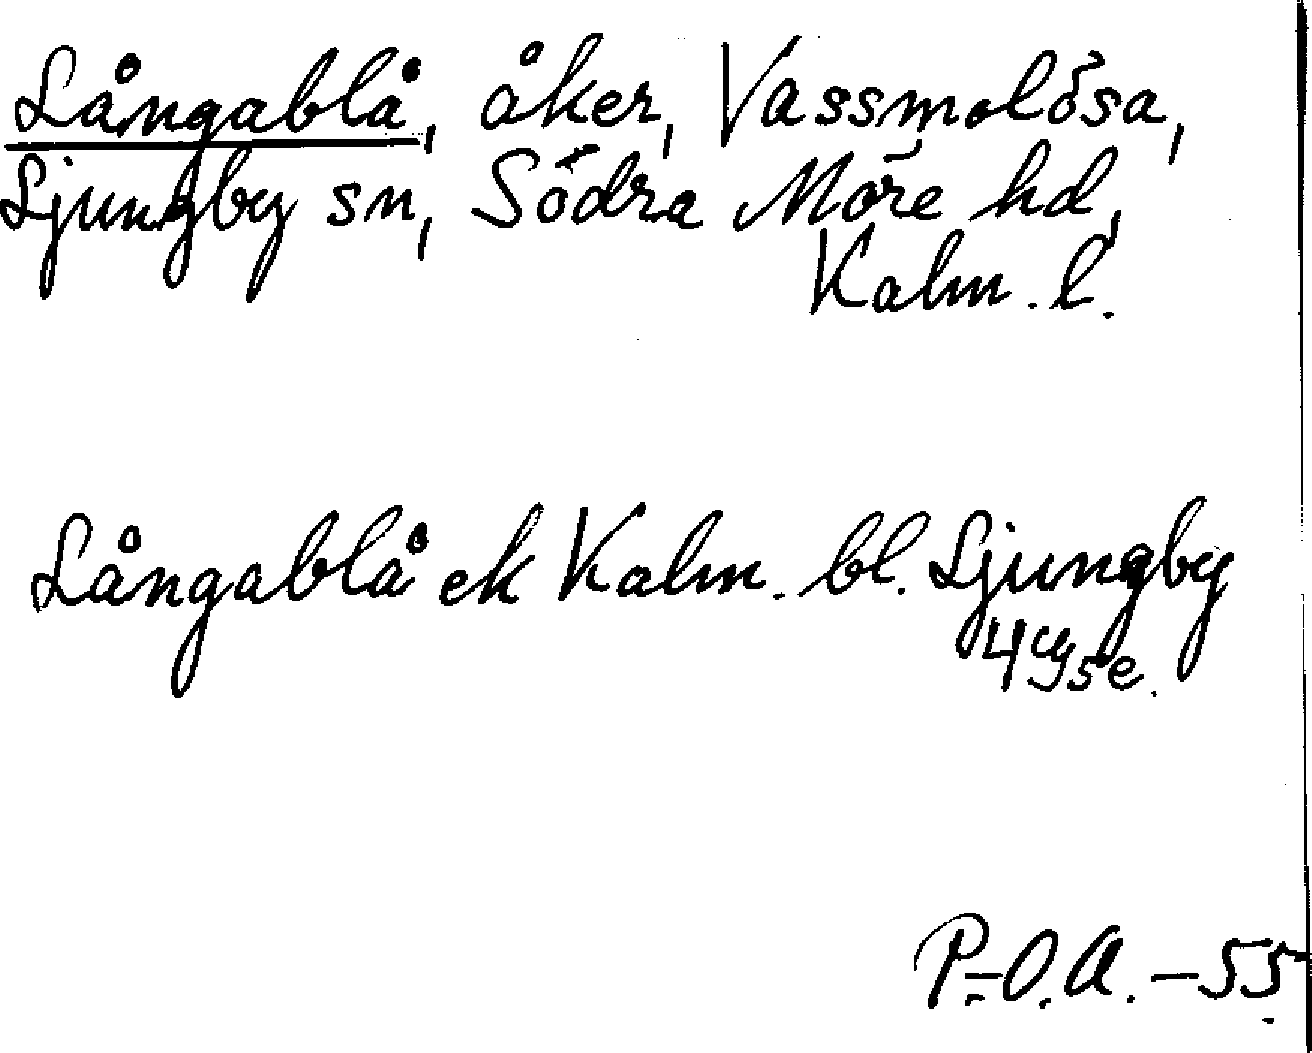 Långablå, åker, Vassmolösa,
Ljungby sn, Södra Möre hd,
Kalm. l.
Långablå ek Kalm. bl. Ljungby
4 yse.
P.-O.A. -55